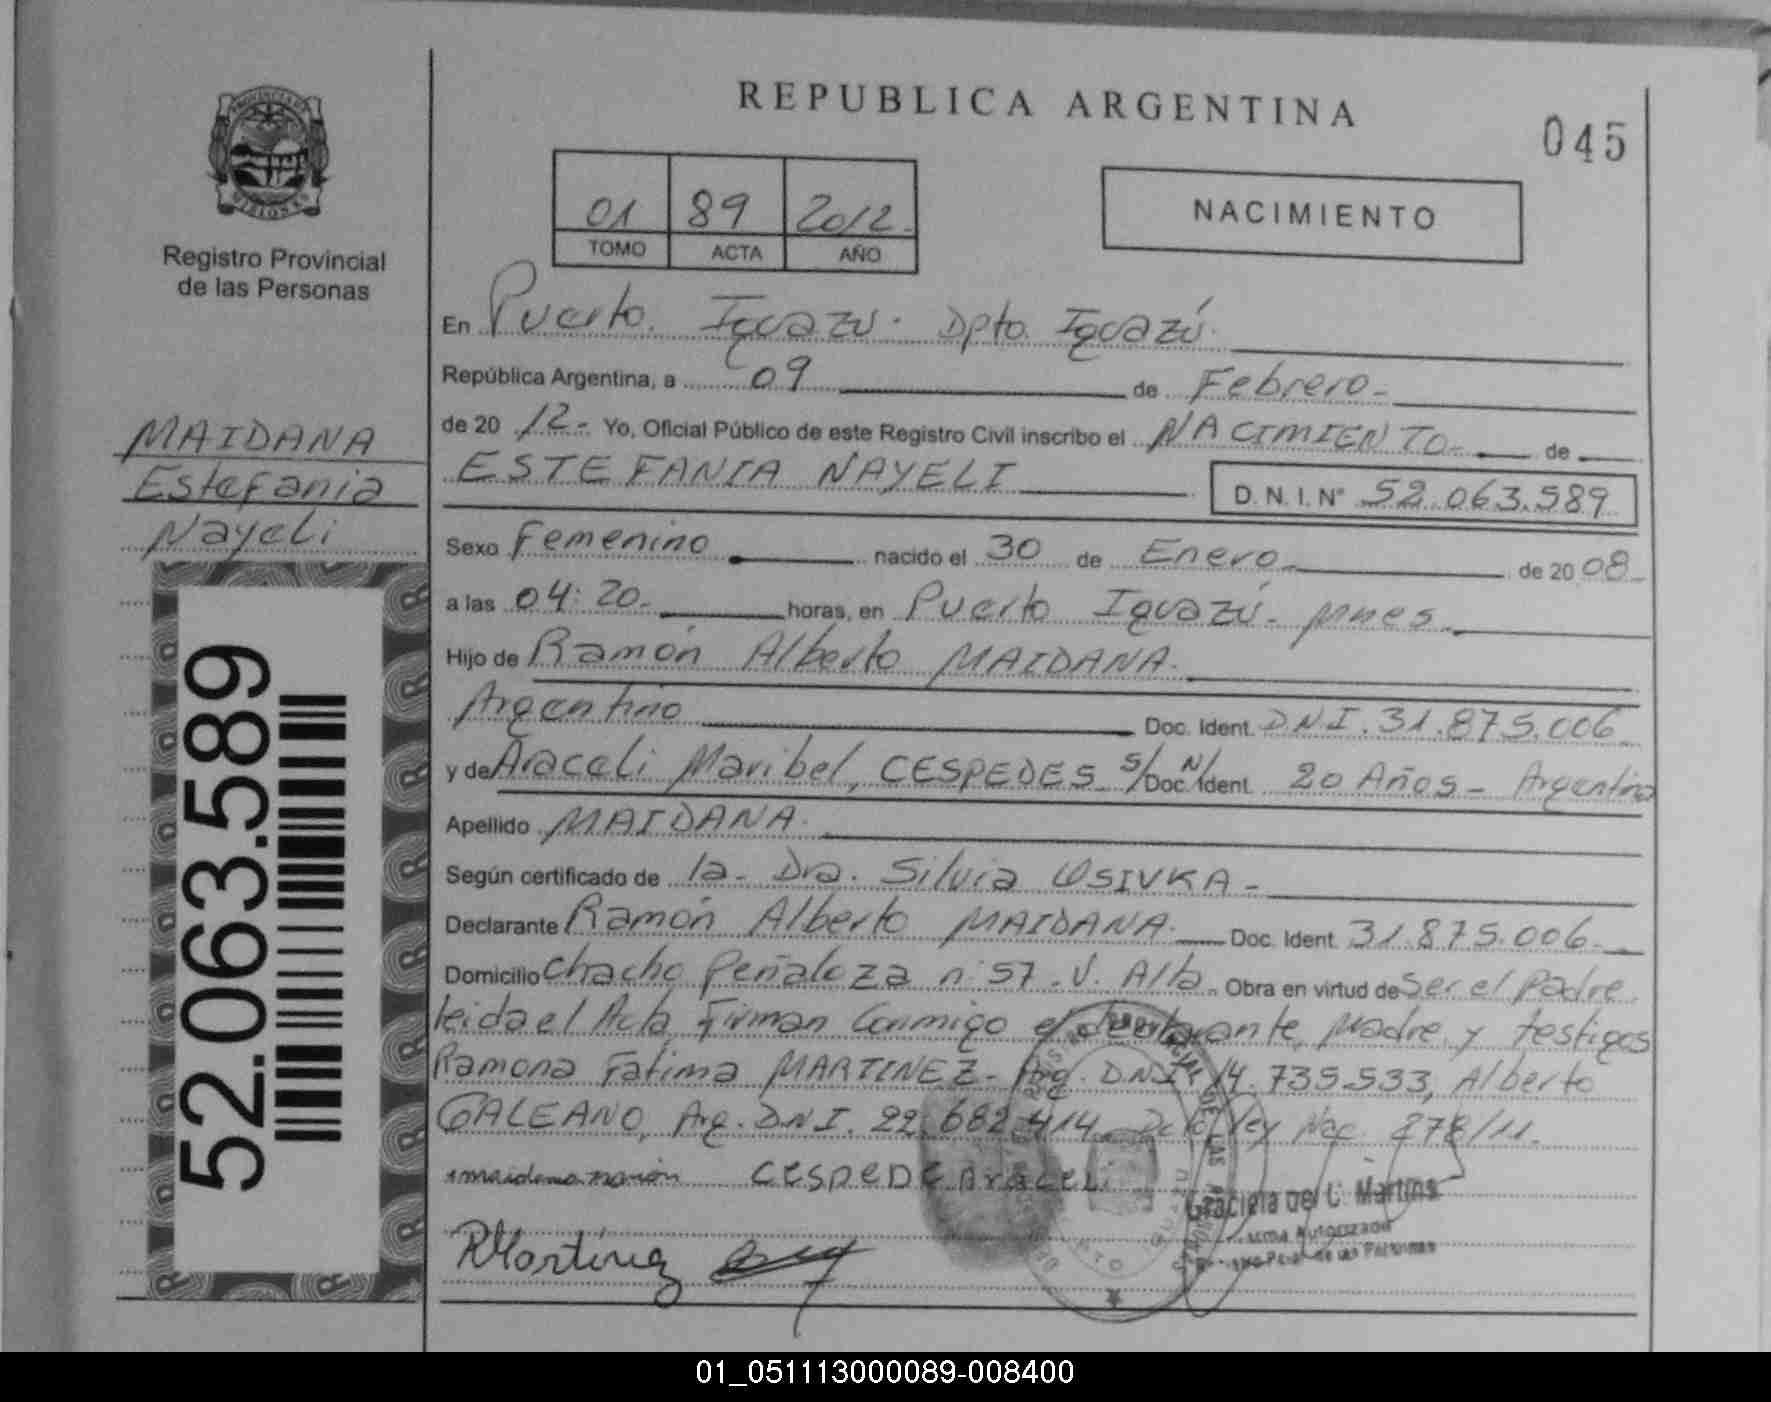 REPUBLICA ARGENTINA
045
PROVINCIA DE
MISIONES
Registro Provincial
de las Personas
01 89 2012
TOMO ACTA AÑO
NACIMIENTO
En Puerto Iguazú. Dpto. Iguazú.
República Argentina, a 09 de Febrero-
de 20 12- Yo, Oficial Público de este Registro Civil inscribo el NACIMIENTO- de
ESTEFANIA NAYELI
D. N. I. Nº 52.063.589
MAIDANA
Estefania
Nayeli
Sexo Femenino nacido el 30 de Enero de 20 08-
a las 04:20- horas, en Puerto Iguazú- Mnes
Hijo de Ramón Alberto MAIDANA.
Argentino Doc. Ident. DNI. 31.875.006
y de Araceli Maribel, CESPEDES S/N/ Doc. Ident. 20 Años- Argentina
Apellido MAIDANA.
Según certificado de la Dra. Silvia USIVKA-
Declarante Ramón Alberto MAIDANA. Doc. Ident. 31.875.006.
Domicilio Chacho Peñaloza nº 57. V. Alta. Obra en virtud de Ser el padre.
leida el Acta, Firman Conmigo el declarante, Madre, y testigos
Ramona Fatima MARTINEZ- Arg. DNI 14.735.533, Alberto
GALEANO, Arg. DNI. 22.682.414. Ley Nac. 278/11.
maidana ramón CESPEDE Araceli
RMartinez
Graciela del C. Martins
52.063.589
01_051113000089-008400